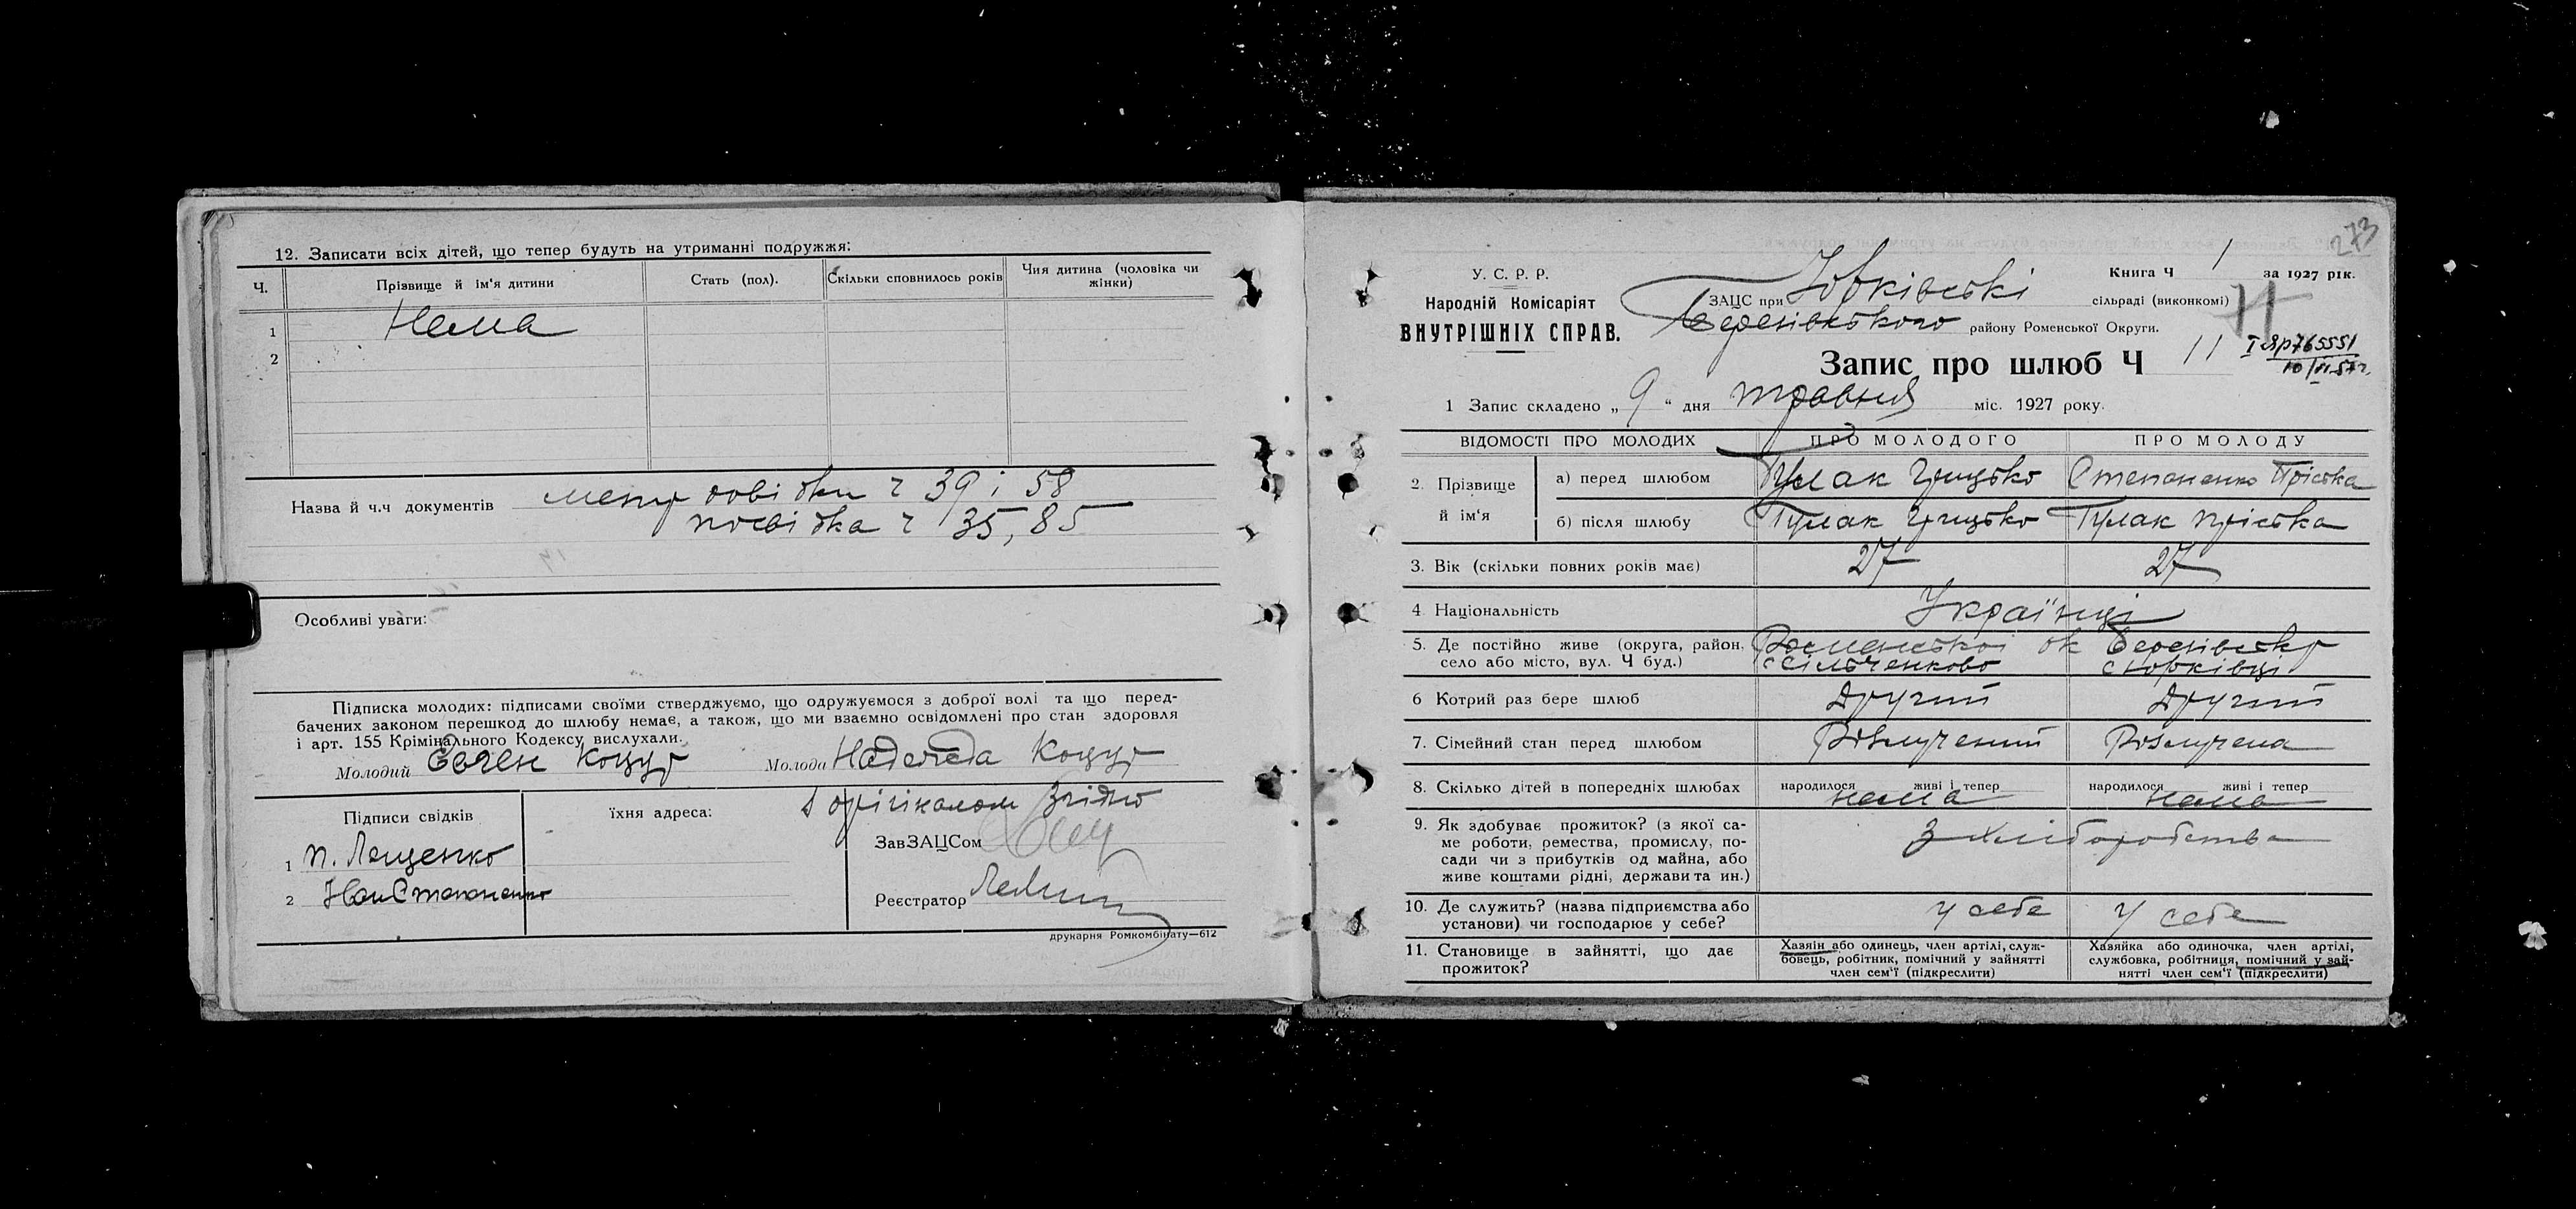 12. Записати всіх дітей, що тепер будуть на утриманні подружжя:
Ч. Прізвище й ім'я дитини Стать (пол). Скільки сповнилось років Чия дитина (чоловіка чи жінки)
1 Нема
2
Назва й ч.ч документів довідки ч 39 і 58
посвідка ч 35, 85
Особливі уваги:
Підписка молодих: підписами своїми стверджуємо, що одружуємося з доброї волі та що перед-
бачених законом перешкод до шлюбу немає, а також, що ми взаємно освідомлені про стан здоровля
і арт. 155 Крімінального Кодексу вислухали.
Молодий Євген Коцур Молода Надежда Коцур
Підписи свідків їхня адреса: З оригіналом згідно
1 П. Лещенко
ЗавЗАЦСом
2 Іван Степаненко
Реєстратор
друкарня Ромкомбінату—612
273
У. С. Р. Р.
Народній Комісаріят
ВНУТРІШНІХ СПРАВ.
Книга Ч 1 за 1927 рік.
ЗАЦС при Юрківські сільраді (виконкомі)
Березівського району Роменської Округи.
Запис про шлюб Ч 11
765551
1 Запис складено „ 9 “ дня травня міс. 1927 року.
ВІДОМОСТІ ПРО МОЛОДИХ ПРО МОЛОДОГО ПРО МОЛОДУ
2. Прізвище й ім'я
а) перед шлюбом Гулак Грицько Степаненко Пріська
б) після шлюбу Гулак Грицько Гулак Пріська
3. Вік (скільки повних років має) 27 27
4 Національність Українці
5. Де постійно живе (округа, район, село або місто, вул. Ч буд.) Роменської ок Березівсько
с Сільченково с Юрківці
6 Котрий раз бере шлюб Другий Другий
7. Сімейний стан перед шлюбом Розлучений Розлучена
8. Скілько дітей в попередніх шлюбах народилося живі і тепер нема народилося живі і тепер нема
9. Як здобуває прожиток? (з якої са-
ме роботи, ремества, промислу, по-
сади чи з прибутків од майна, або
живе коштами рідні, держави та ин.)
З хліборобства
10. Де служить? (назва підприємства або
установи) чи господарює у себе?
у себе у себе
11. Становище в зайнятті, що дає
прожиток?
Хазяін або одинець, член артілі, служ-
бовець, робітник, помічний у зайнятті
член сем'ї (підкреслити)
Хазяйка або одиночка, член артілі,
службовка, робітниця, помічний у зай-
нятті член сем'ї (підкреслити)